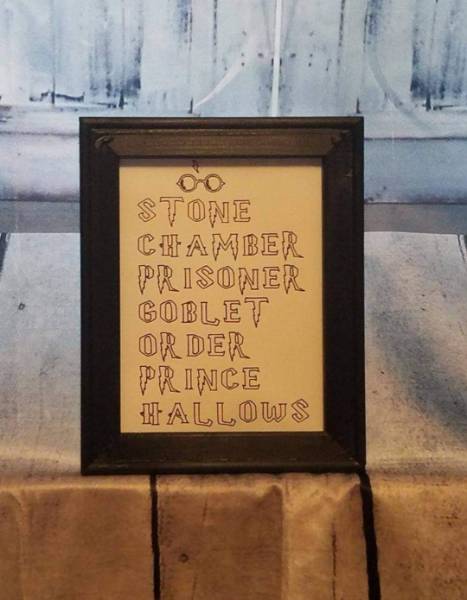 STONE
CHAMBER
PRISONER
GOBLET
ORDER
PRINCE
HALLOWS